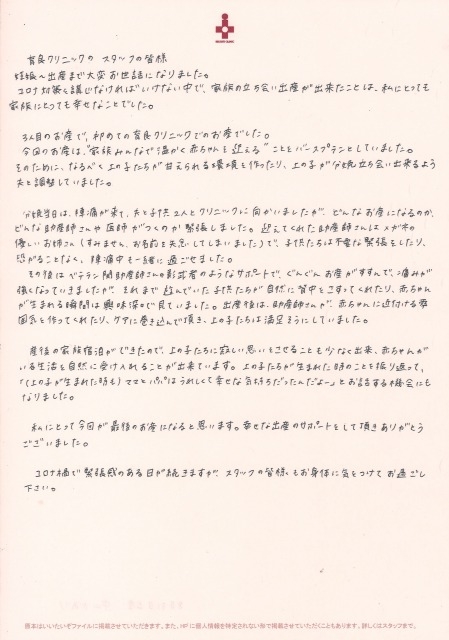 育良クリニックの スタッフの皆様
妊娠〜出産まで大変お世話になりました。
コロナ対策を講じなければいけない中で、家族の立ち会い出産が出来たことは、私にとっても
家族にとっても幸せなことでした。
3人目のお産で、初めての育良クリニックでのお産でした。
今回のお産は、"家族みんなで温かく赤ちゃんを迎える"ことをバースプランとしていました。
そのために、なるべく上の子たちが甘えられる環境を作ったり、上の子が分娩立ち会い出来るよう
夫と調整していました。
分娩当日は、陣痛が来て、夫と子供2人とクリニックに向かいましたが、どんなお産になるのか、
どんな助産師さんや医師がつくのか緊張しました。迎えてくれた助産師さんはメガネの
優しいお姉さん(すみません、お名前を失念してしまいました)で、子供たちは不要な緊張をしたり、
恐がることなく、陣痛中も一緒に過ごせました。
その後はベテラン助産師さんの影武者のようなサポートで、ぐんぐんお産がすすんで、痛みが
強くなっていきましたが、それまで遊んでいた子供たちが自然に背中をさすってくれたり、赤ちゃん
が生まれる瞬間は興味深々で見ていました。出産後は、助産師さんが、赤ちゃんに近付ける雰
囲気を作ってくれたり、ケアに巻き込んで頂き、上の子たちは満足そうにしていました。
産後の家族宿泊ができたので、上の子たちに寂しい思いをさせることも少なく出来、赤ちゃんが
いる生活を自然に受け入れることが出来ています。上の子たちが生まれた時のことを振り返って、
「(上の子が生まれた時も)ママとパパはうれしくて幸せな気持ちだったんだよー」とお話する機会にも
なりました。
私にとって今回が最後のお産になると思います。幸せな出産のサポートをして頂きありがとう
ございました。
コロナ禍で緊張感のある日が続きますが、スタッフの皆様もお身体に気をつけてお過ごし
下さい。
原本はいいたいぞファイルに掲載させていただきます。また、HPに個人情報を特定されない形で掲載させていただくこともあります。詳しくはスタッフまで。